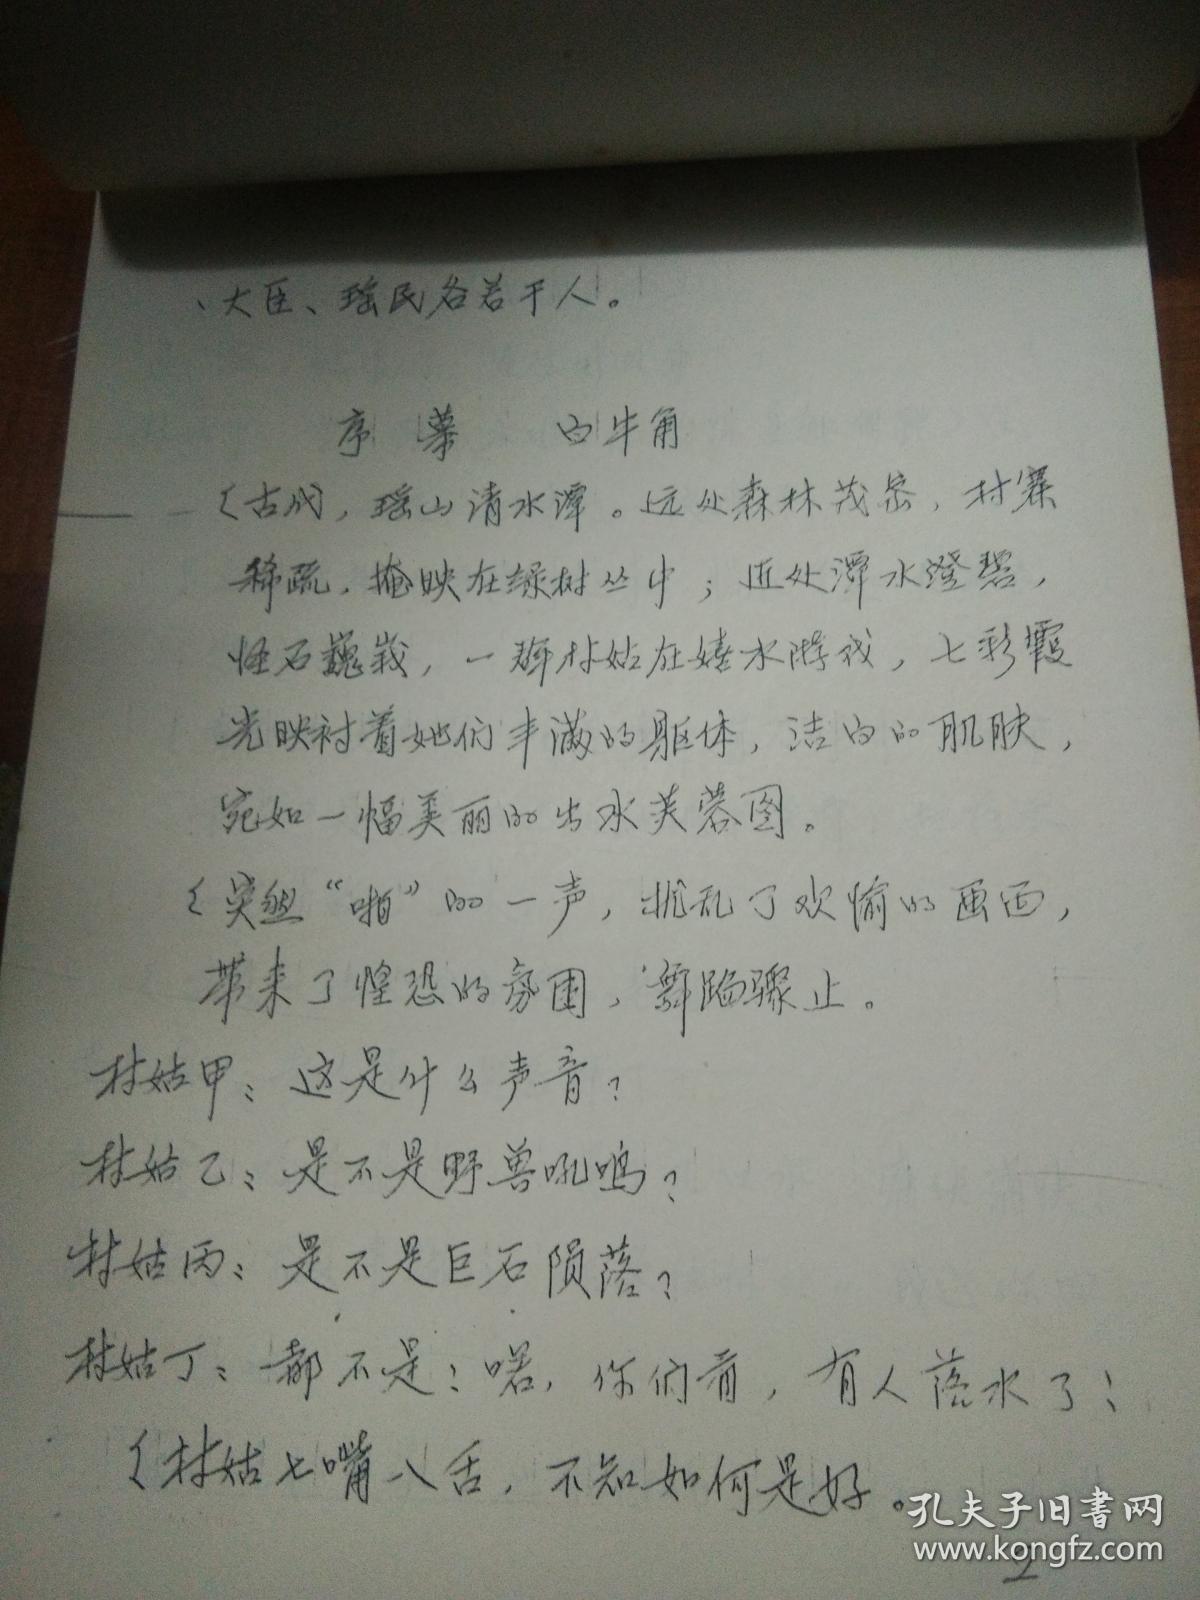 、大臣、瑶民各若干人。
序幕 白牛角
〈古代，瑶山清水潭。远处森林茂密，村寨
稀疏，掩映在绿树丛中；近处潭水澄碧，
怪石巍峩，一群村姑在嬉水游戏，七彩霞
光映衬着她们丰满的躯体，洁白的肌肤，
宛如一幅美丽的出水芙蓉图。
〈突然“啪”的一声，扰乱了欢愉的画面，
带来了惶恐的氛围，舞蹈骤止。
村姑甲：这是什么声音？
村姑乙：是不是野兽吼鸣？
村姑丙：是不是巨石陨落？
村姑丁：都不是！喏，你们看，有人落水了！
〈村姑七嘴八舌，不知如何是好。
2
孔夫子旧书网
www.kongfz.com